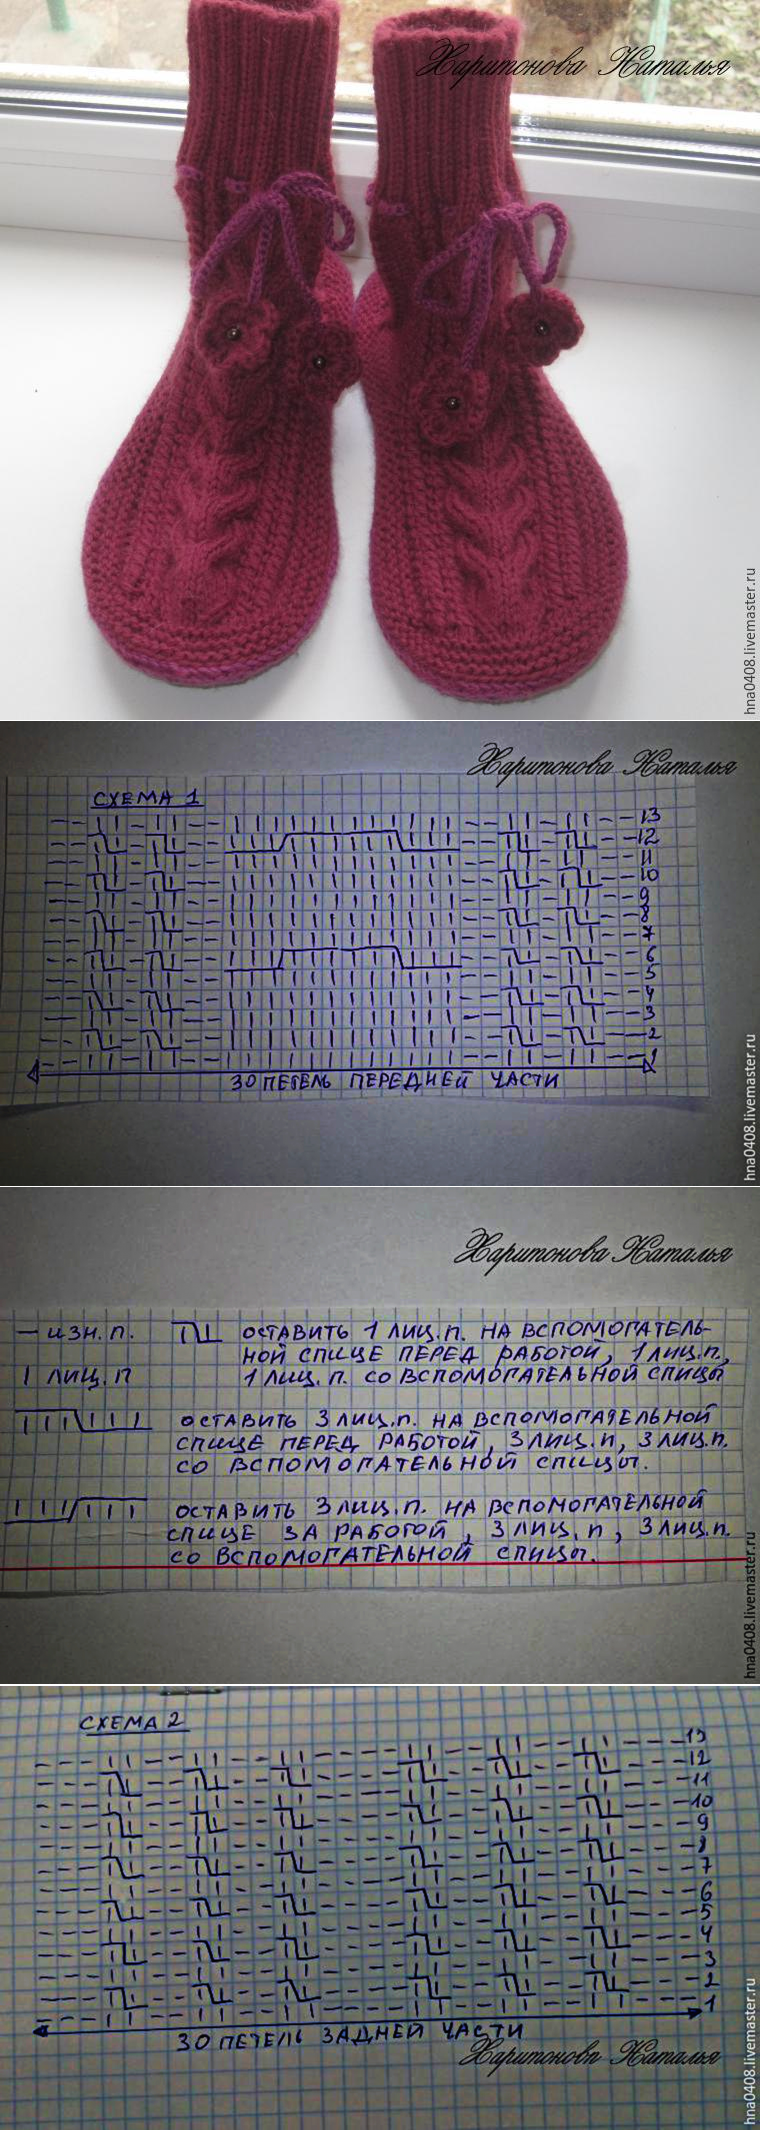 Харитонова Наталья
hna0408.livemaster.ru
Харитонова Наталья
СХЕМА 1
13
12
11
10
9
8
7
6
5
4
3
2
1
30 ПЕТЕЛЬ ПЕРЕДНЕЙ ЧАСТИ
hna0408.livemaster.ru
Харитонова Наталья
— ИЗН. П.
ОСТАВИТЬ 1 ЛИЦ.П. НА ВСПОМОГАТЕЛЬ-
НОЙ СПИЦЕ ПЕРЕД РАБОТОЙ, 1 ЛИЦ.П.,
I ЛИЦ. П
1 ЛИЦ. П. СО ВСПОМОГАТЕЛЬНОЙ СПИЦЫ
ОСТАВИТЬ 3 ЛИЦ.П. НА ВСПОМОГАТЕЛЬНОЙ
СПИЦЕ ПЕРЕД РАБОТОЙ, 3 ЛИЦ.П, 3 ЛИЦ.П.
СО ВСПОМОГАТЕЛЬНОЙ СПИЦЫ.
ОСТАВИТЬ 3 ЛИЦ.П. НА ВСПОМОГАТЕЛЬНОЙ
СПИЦЕ ЗА РАБОТОЙ, 3 ЛИЦ. П, 3 ЛИЦ.П.
СО ВСПОМОГАТЕЛЬНОЙ СПИЦЫ.
hna0408.livemaster.ru
СХЕМА 2
13
12
11
10
9
8
7
6
5
4
3
2
1
30 ПЕТЕЛЬ ЗАДНЕЙ ЧАСТИ
Харитонова Наталья
hna0408.livemaster.ru